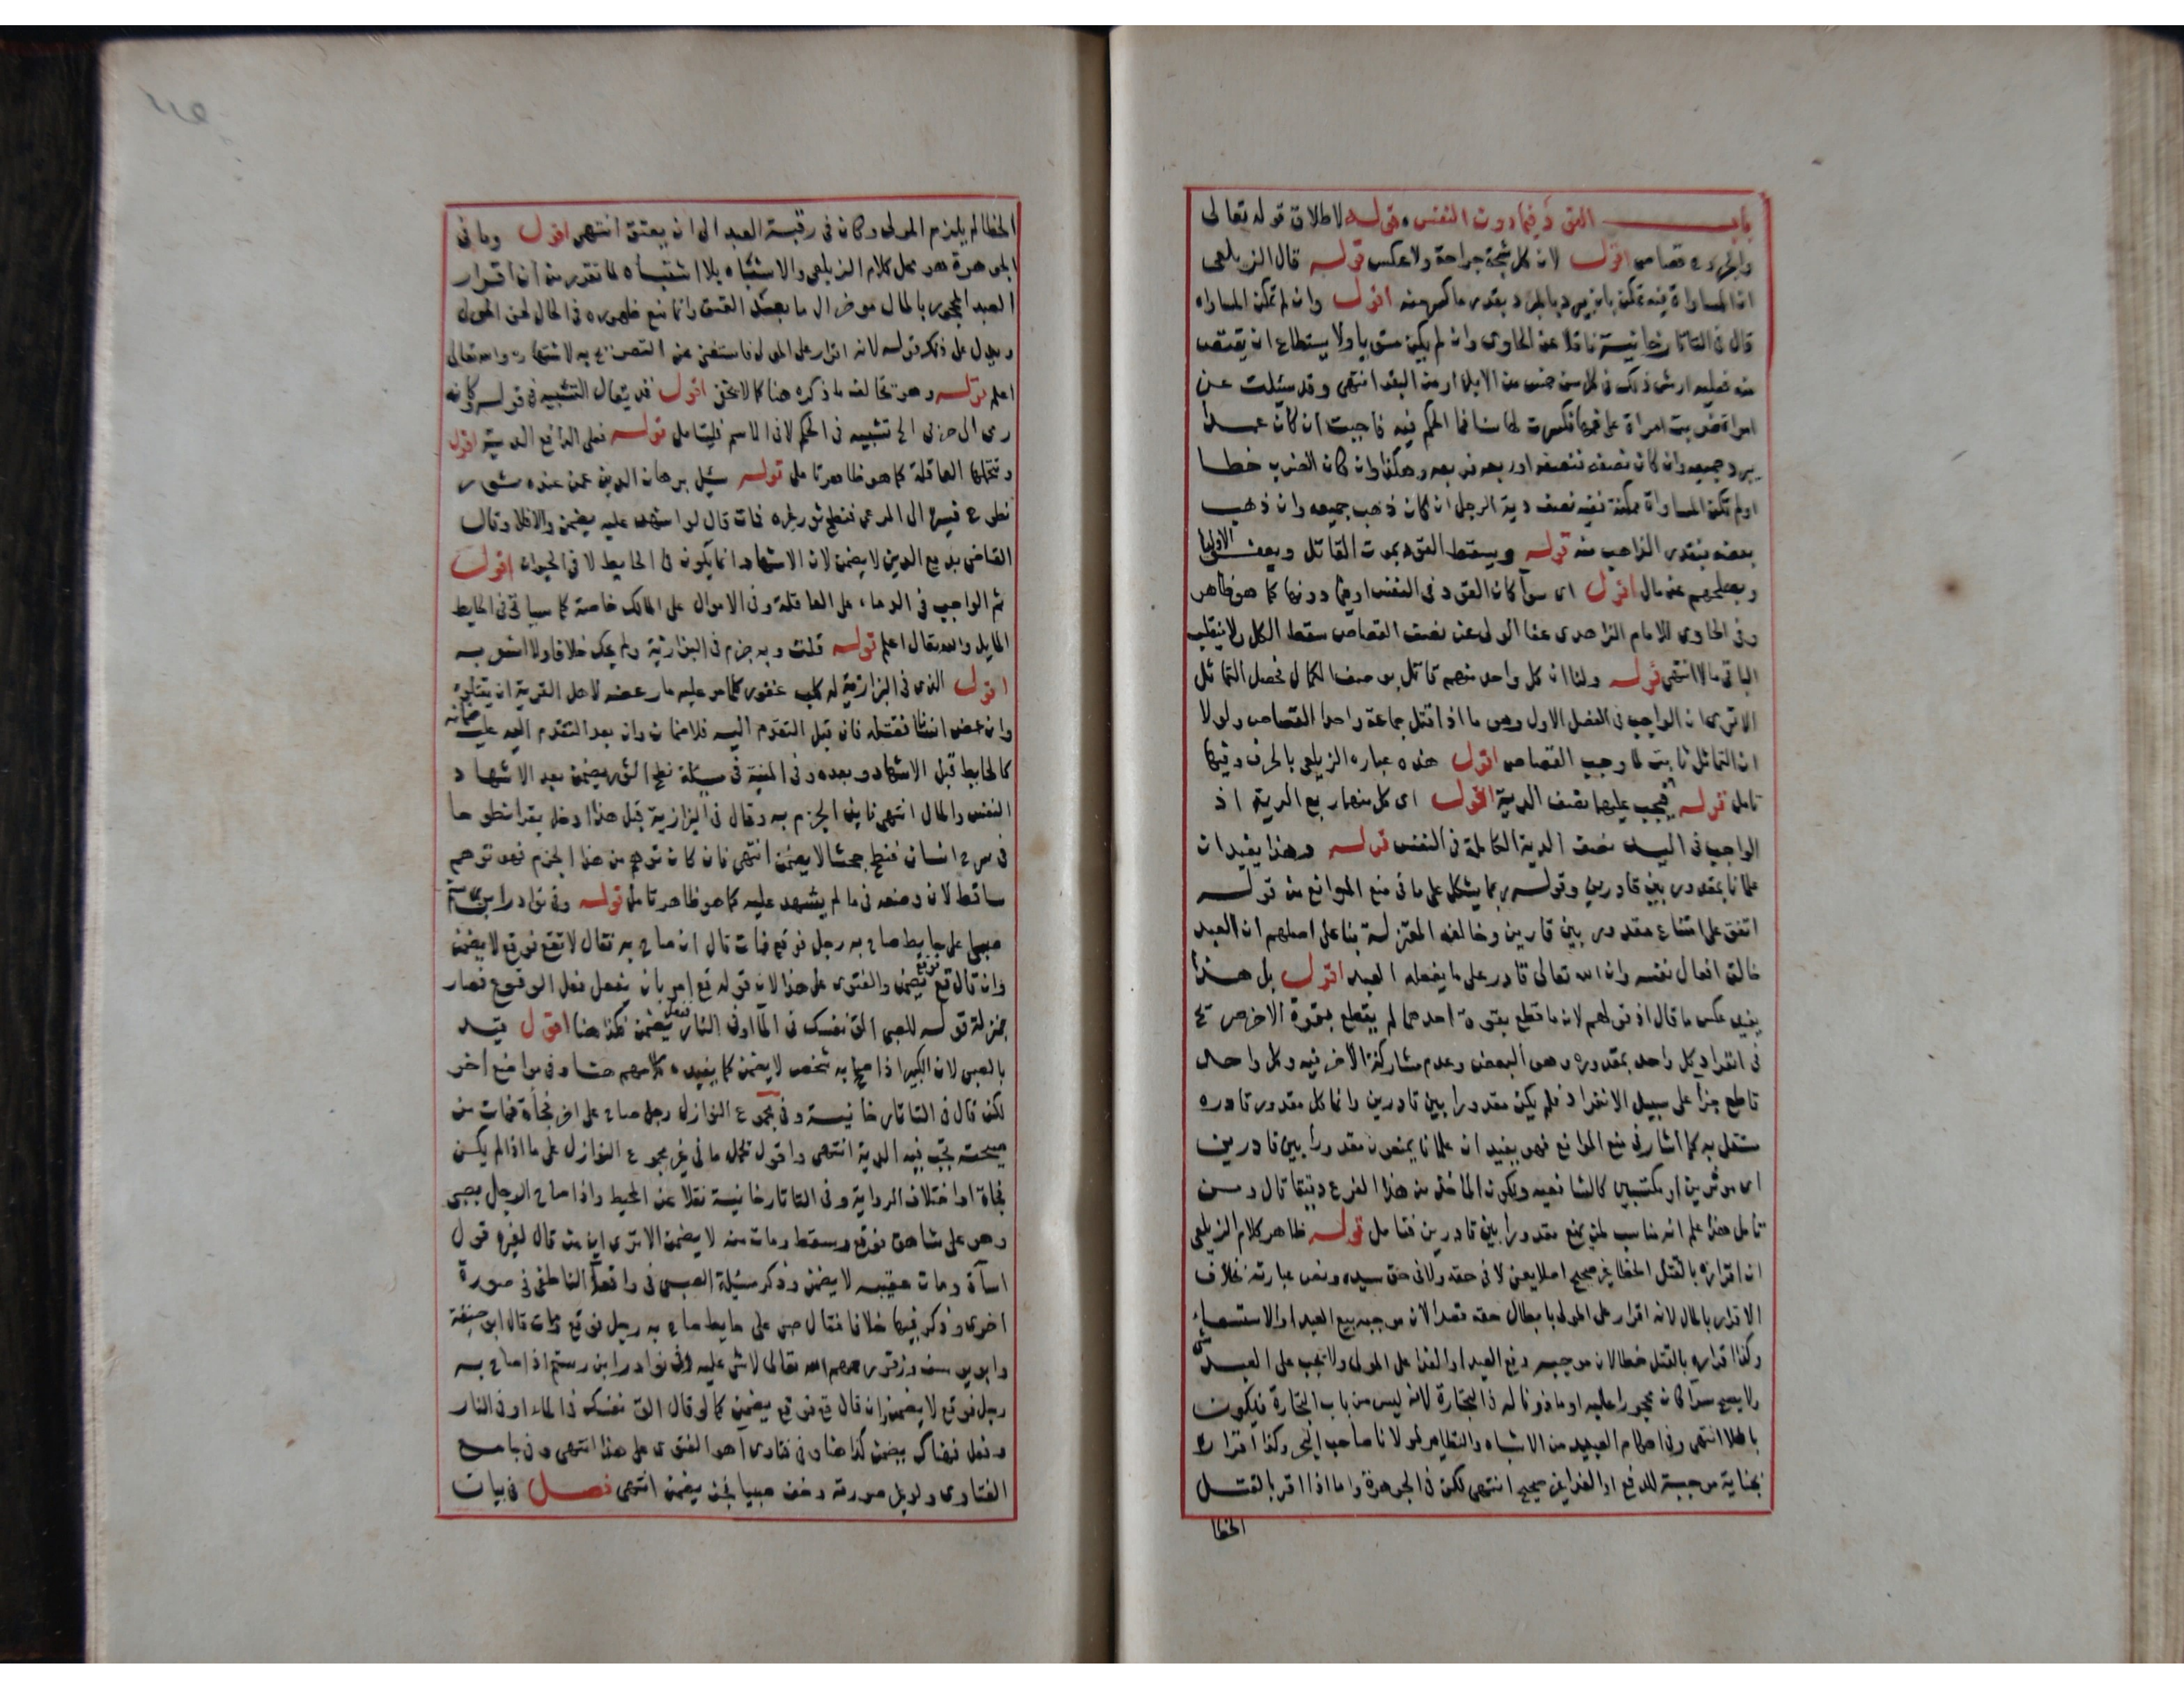 باب القود فيما دون النفس قوله لاطلاق قوله تعالى
والجروح قصاص اقول لان كل شجة جراحة ولا عكس قوله قال الزيلعي
ان المساواة فيه تمكن بان يبرد بالمبرد بقدر ما كسر منه اقول وان لم تمكن المساواه
قال في التاتارخانية ناقلا عن الحاوى وان لم يكن مستويا ولا يستطاع ان يقتص
منه فعليه ارش ذلك في كل سن خمس من الابل او من البقر انتهى وقد سئلت عن
امراة ضربت امراة على فمها فكسرت لها سنا فما الحكم فيه فاجبت ان كان عمدا
يبرد جميعه وان كان نصفه فنصفه او ربعه فربعه وهكذا وان كان الضرب خطا
او لم تكن المساواة ممكنة ففيه نصف دية الرجل ان كان ذهب جميعه وان ذهب
بعضه بقدر الذاهب منه قوله ويسقط القود بموت القاتل وبعفو الاوليا
وبصلحهم على مال اقول اى سوآ كان القود في النفس او فيما دونها كما هو ظاهر
وفي الحاوى للامام الزاهدى عفا الولى عن نصف القصاص سقط الكل ولا ينقلب
الباقي مالا انتهى قوله ولنا ان كل واحد منهم قاتل بوصف الكمال فحصل التماثل
الا ترى ان الواجب في الفصل الاول وهو ما اذا قتل جماعة واحدا القصاص ولولا
ان التماثل ثابت لما وجب القصاص اقول هذه عبارة الزيلعي بالحرف وفيها
تامل قوله فيجب عليهما نصف الدية اقول اى كل منهما ربع الدية اذ
الواجب في اليد نصف الدية الكاملة في النفس قوله وهذا يفيد ان
علمانا بمقدور بين قادرين وقوله ربما يشكل على ما في منع الموانع من قوله
اتفق على امتناع مقدور بين قادرين وخالفه المعتزلة بنا على اصلهم ان العبد
خالق افعال نفسه وان الله تعالى قادر على ما يفعله العبد اقول بل هذا
يفيد عكس ما قال اذ قولهم لان ما قطع بقوة احدهما لم يقطع بقوة الاخر صريح
في انفراد كل واحد بمقدوره وهو البعض وعدم مشاركة الآخر فيه وكل واحد
قاطع جزا على سبيل الانفراد فلم يكن مقدورا بين قادرين وانما كل مقدور قادره
مستقل به كما اشار في منع الموانع فهو يفيد ان علمانا يمنعون مقدورا بين قادرين
اى موثرين او مكتسبين كالشافعيه ويكون الماخذ من هذا الفرع دقيقا قال ومن
تامل هذا علم انه مناسب لمن يمنع مقدورا بين قادرين فتامل قوله ظاهر كلام الزيلعي
ان اقراره بالقتل الخطا غير صحيح اصلا يعنى لا في حقه ولا في حق سيده ونص عبارته بخلاف
الاقرار بالمال لانه اقرار على المولى بابطال حقه قصدا لان موجبه بيع العبد او الاستسعاء
وكذا اقراره بالقتل خطا لان موجبه دفع العبد او الفدا على المولى ولا يجب على العبد شى
ولا يصح سوآ كان محجورا عليه او ماذونا له في التجارة لانه ليس من باب التجارة فيكون
باطلا انتهى وفي احكام العبيد من الاشباه والنظاير لمولانا صاحب البحر وكذا اقراره
بجناية موجبة للدفع او الفدا غير صحيح انتهى لكن في الجوهرة واما اذا اقر بالقتل
الخطا
الخطا لم يلزم المولى وكان في رقبة العبد الى ان يعتق انتهى اقول وما في
الجوهرة هو محل كلام الزيلعي والاشباه بلا اشتباه لما تقرر من ان اقرار
العبد المحجور بالمال موخر الى ما بعد العتق وانما منع ظهوره في الحال لحق المولى
ويدل على ذلك قوله لانه اقرار على المولى فاستغنى عن التصريح به لاشتهاره والله تعالى
اعلم قوله وهو مخالف ما ذكره هنا كما لا يخفى اقول قد يقال التشبيه في قوله كانه
رمى الى حربى الخ تشبيه في الحكم لا في الاسم فليتامل قوله فعلى الدافع الدية اقول
وتتحملها العاقلة كما هو ظاهر تامل قوله سئل برهان الدين عمن عنده ثور
نطوح فسرح الى المرعى فنطح ثور غيره فمات قال لو اشهد عليه يضمن والا فلا وقال
القاضى بديع الدين لا يضمن لان الاشهاد انما يكون في الحايط لا في الحيوان اقول
ثم الواجب في الدماء على العاقلة وفي الاموال على المالك خاصة كما سياتى في الحايط
المايل والله تعالى اعلم قوله قلت وبه جزم في البزازية ولم يحك خلافا ولا اشعر به
اقول الذى في البزازية له كلب عقور كلما مر عليه مار عضه لاهل القرية ان يقتلوه
وان عض انسانا فقتله فان قبل التقدم اليه فلا ضمان وان بعد التقدم اليه عليه ضمانه
كالحايط قبل الاشهاد وبعده وفي المنية في مسئلة نطح الثور يضمن بعد الاشهاد
النفس والمال انتهى فاين الجزم به وقال في البزازية قبل هذا ادخل بقرا نطوحا
في سرح انسان فنطح جحشا لا يضمن انتهى فان كان توهم من هذا الجزم فهو توهم
ساقط لان وضعه في ما لم يشهد عليه كما هو ظاهر تامل قوله وفي نوادر ابن رستم
صبي على حايط صاح به رجل فوقع فمات قال ان صاح به فقال لا تقع فوقع لا يضمن
وان قال قع فوقع يضمن والفتوى على هذا لان قوله قع امر بان يفعل فعل الوقوع فصار
بمنزلة قوله للصبى الق نفسك في المآ او في النار ففعل يضمن فكذا هنا اقول قيد
بالصبى لان الكبير اذا صاح به شخص لا يضمن كما يفيده كلامهم هنا وفي مواضع اخر
لكن قال في التاتارخانية وفي مجموع النوازل رجل صاح على اخر فجأة فمات من
صيحته تجب فيه الدية انتهى واقول نحمل ما في غير مجموع النوازل على ما اذا لم يكن
فجاة او اختلاف الرواية وفي التاتارخانية نقلا عن المحيط واذا صاح الرجل بصبى
وهو على شاهق فوقع وسقط ومات منه لا يضمن الا ترى ان من قال لغيره قول
اسآة ومات عقيبه لا يضمن وذكر مسئلة الصبى في واقعات الناطفى في صورة
اخرى وذكر فيها خلافا فقال صبى على حايط صاح به رجل فوقع فمات قال ابو حنيفة
وابو يوسف وزفر رحمهم الله تعالى لا شى عليه وفي نوادر ابن رستم اذا صاح به
رجل فوقع لا يضمن وان قال قع فوقع يضمن كما لو قال الق نفسك في الماء او في النار
وفعل فهناك يضمن كذا هنا وفي فتاوى آهو الفتوى على هذا انتهى وفي جامع
الفتاوى ولو بدل صورته وخوف صبيا فجن يضمن انتهى فصل في بيان